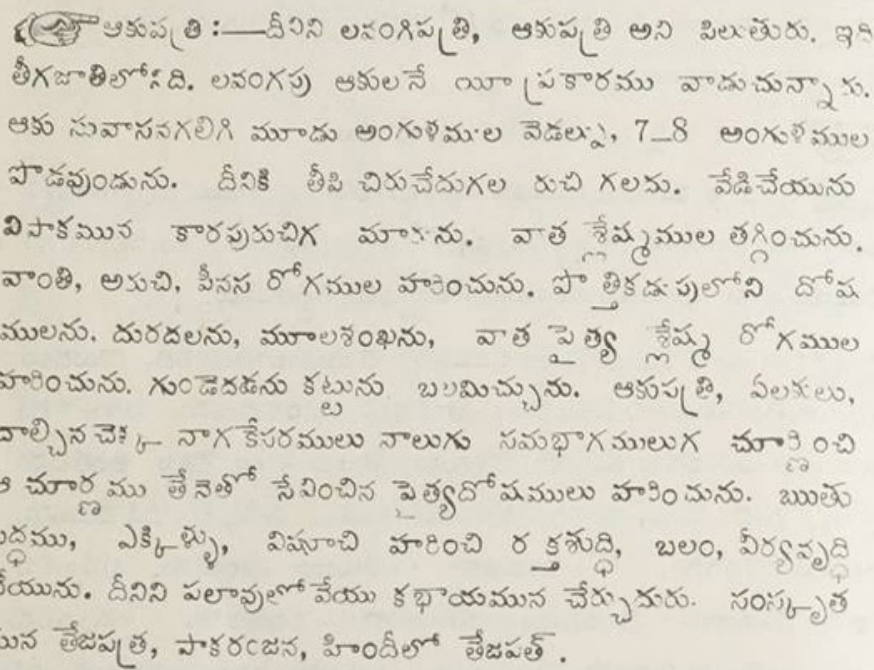 ఆకుపత్రి :— దీనిని లవంగిపత్రి, ఆకుపత్రి అని పిలుతురు. ఇది
తీగజాతిలోనిది. లవంగపు ఆకులనే యీ ప్రకారము వాడుచున్నారు.
ఆకు సువాసనగలిగి మూడు అంగుళముల వెడల్పు, 7–8 అంగుళముల
పొడవుండును. దీనికి తీపి చిరుచేదుగల రుచి గలదు. వేడిచేయును
విపాకమున కారపురుచిగ మారును. వాత శ్లేష్మముల తగ్గించును.
వాంతి, అరుచి, పీనస రోగముల హరించును. పొత్తికడుపులోని దోష
ములను. దురదలను, మూలశంఖను, వాత పైత్య శ్లేష్మ రోగముల
హరించును. గుండెదడను కట్టును బలమిచ్చును. ఆకుపత్రి, ఏలకులు,
దాల్చినచెక్క నాగకేసరములు నాలుగు సమభాగములుగ చూర్ణించి
ఆ చూర్ణము తేనెతో సేవించిన పైత్యదోషములు హరించును. ఋతు
బద్ధము, ఎక్కిళ్ళు, విషూచి హరించి రక్తశుద్ధి, బలం, వీర్యవృద్ధి
చేయును. దీనిని పలావులో వేయు కషాయమున చేర్చుదురు. సంస్కృత
మున తేజపత్ర, పాకరంజన, హిందీలో తేజపత్.